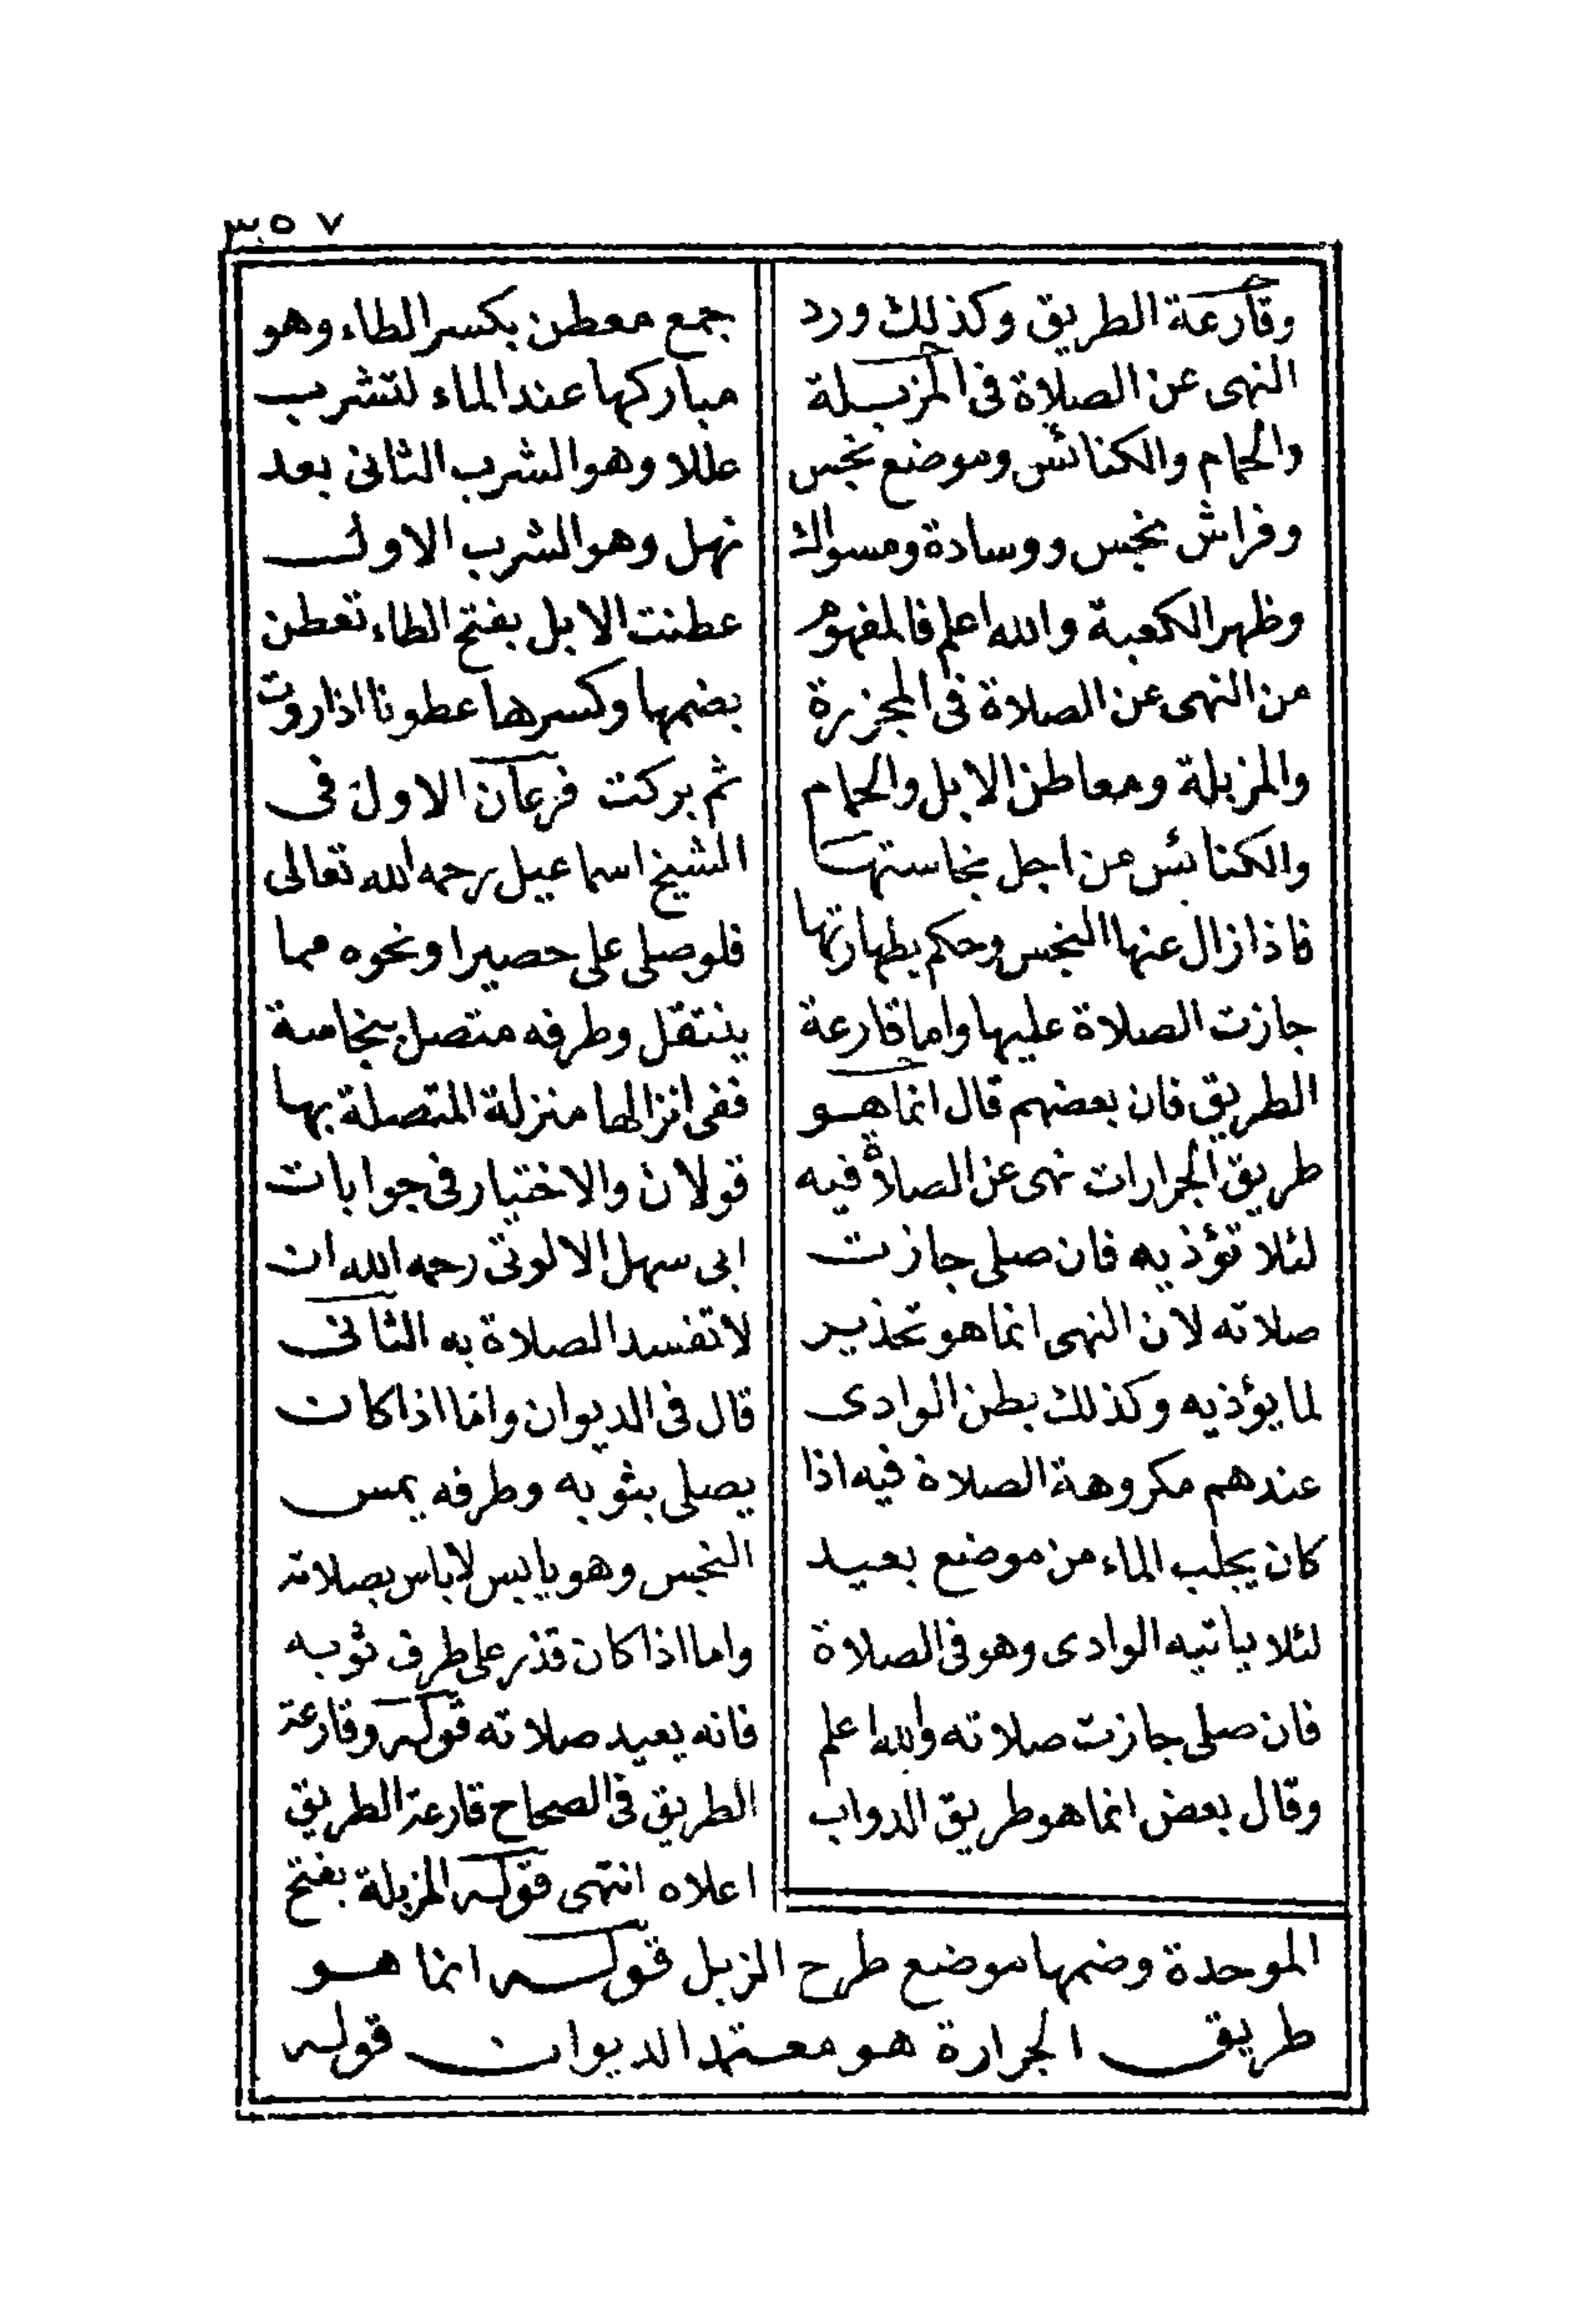 ٣٥٧
وقارعة الطريق وكذلك ورد
النهى عن الصلاة فى المزبلة
والحمام والكنائس وموضع نجس
وفراش نجس ووسادة ومسواك
وظهر الكعبة والله اعلم فالمفهوم
من النهى عن الصلاة فى المجزرة
والمزبلة ومعاطن الابل والحمام
والكنائس من اجل نجاستها
فاذا زال عنها النجس وحكم بطهارتها
جازت الصلاة عليها واما قارعة
الطريق فان بعضهم قال انما هو
طريق الجرارات نهى عن الصلاة فيه
لئلا تؤذيه فان صلى جازت
صلاته لان النهى انما هو تحذير
لما يؤذيه وكذلك بطن الوادى
عندهم مكروهة الصلاة فيه اذا
كان يجلب الماء من موضع بعيد
لئلا ياتيه الوادى وهو فى الصلاة
فان صلى جازت صلاته والله اعلم
وقال بعض انما هو طريق الدواب
جمع معطن بكسر الطاء وهو
مباركها عند الماء لتشرب
عللا وهو الشرب الثانى بعد
نهل وهو الشرب الاول
عطنت الابل بفتح الطاء تعطن
بضمها وكسرها عطونا اذا روت
ثم بركت فرعان الاول فى
الشيخ اسماعيل رحمه الله تعالى
فلو صلى على حصير او نحوه مما
ينتقل وطرفه متصل بنجاسة
ففى انزالها منزلة المتصلة بها
قولان والاختيار فى جوابات
ابى سهل الالوتى رحمه الله ان
لا تفسد الصلاة به الثانى
قال فى الديوان واما اذا كان
يصلى بثوبه وطرفه يمس
النجس وهو يابس لا باس بصلاته
واما اذا كان قذر على طرف ثوبه
فانه يعيد صلاته قوله وقارعة
الطريق فى الصحاح قارعة الطريق
اعلاه انتهى قوله المزبلة بفتح
الموحدة وضمها موضع طرح الزبل قوله انما هو
طريق الجرارة هو معتمد الديوان قوله